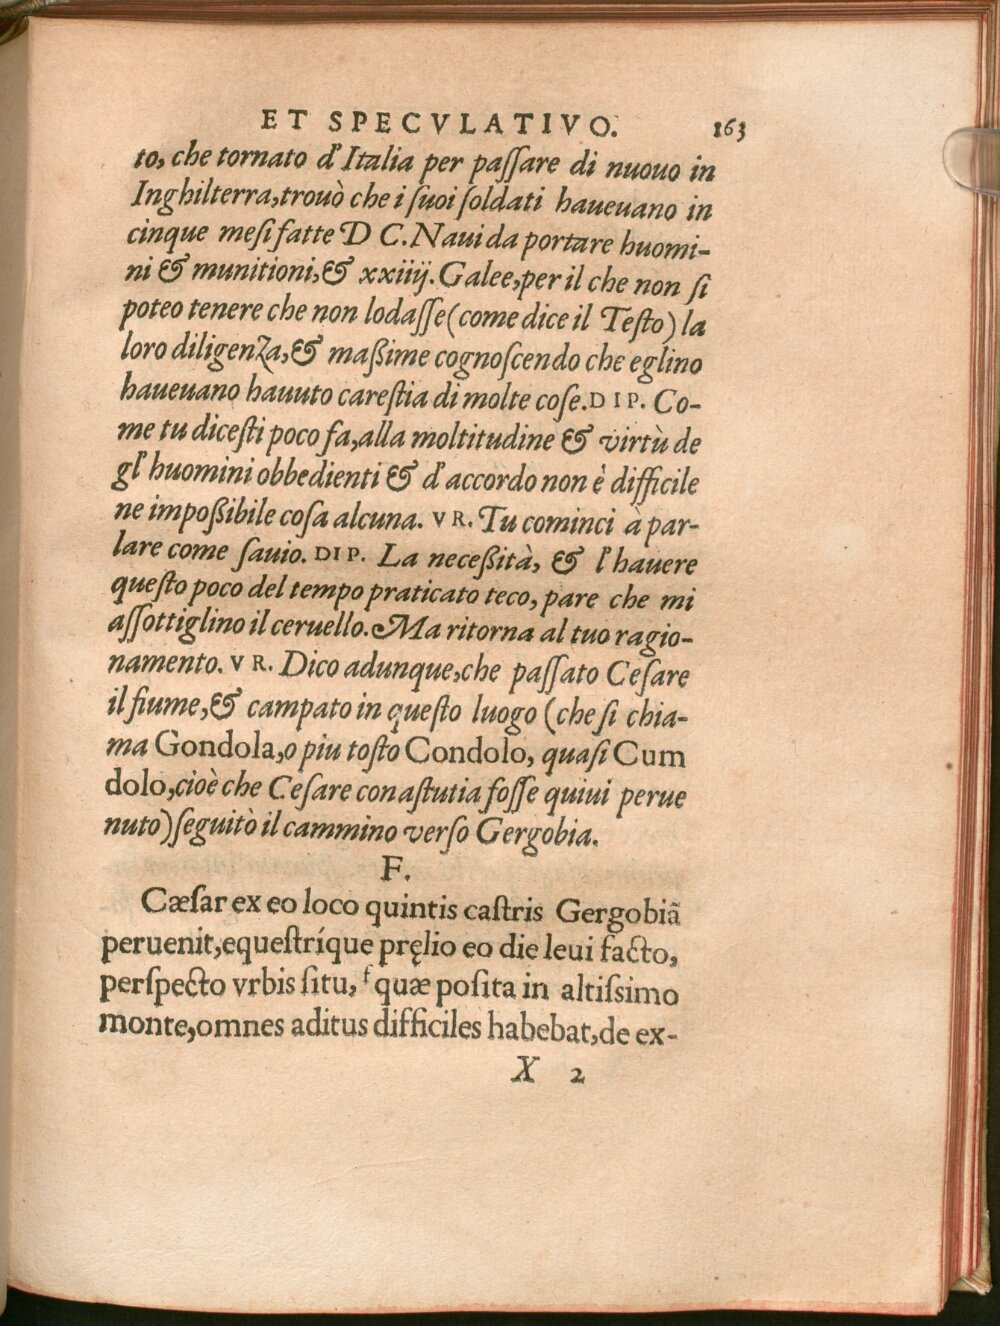 ET SPECVLATIVO. 163
to, che tornato d'Italia per paſſare di nuouo in
Inghilterra, trouò che i ſuoi ſoldati haueuano in
cinque meſi fatte D C. Naui da portare huomi-
ni & munitioni, & xxiiij. Galee, per il che non ſi
poteo tenere che non lodaſſe (come dice il Teſto) la
loro diligenza, & maßime cognoſcendo che eglino
haueuano hauuto careſtia di molte coſe. DIP. Co-
me tu diceſti poco fa, alla moltitudine & virtù de
gl' huomini obbedienti & d'accordo non è difficile
ne impoßibile coſa alcuna. VR. Tu cominci à par-
lare come ſauio. DIP. La neceßità, & l'hauere
queſto poco del tempo praticato teco, pare che mi
aſſottiglino il ceruello. Ma ritorna al tuo ragio-
namento. VR. Dico adunque, che paſſato Ceſare
il fiume, & campato in queſto luogo (che ſi chia-
ma Gondola, o piu toſto Condolo, quaſi Cum
dolo, cioè che Ceſare con aſtutia foſſe quiui perue
nuto) ſeguitò il cammino verſo Gergobia.
F.
Cæſar ex eo loco quintis caſtris Gergobiã
peruenit, equeſtríque pręlio eo die leui facto,
perſpecto vrbis ſitu, f quæ poſita in altiſsimo
monte, omnes aditus difficiles habebat, de ex-
X 2